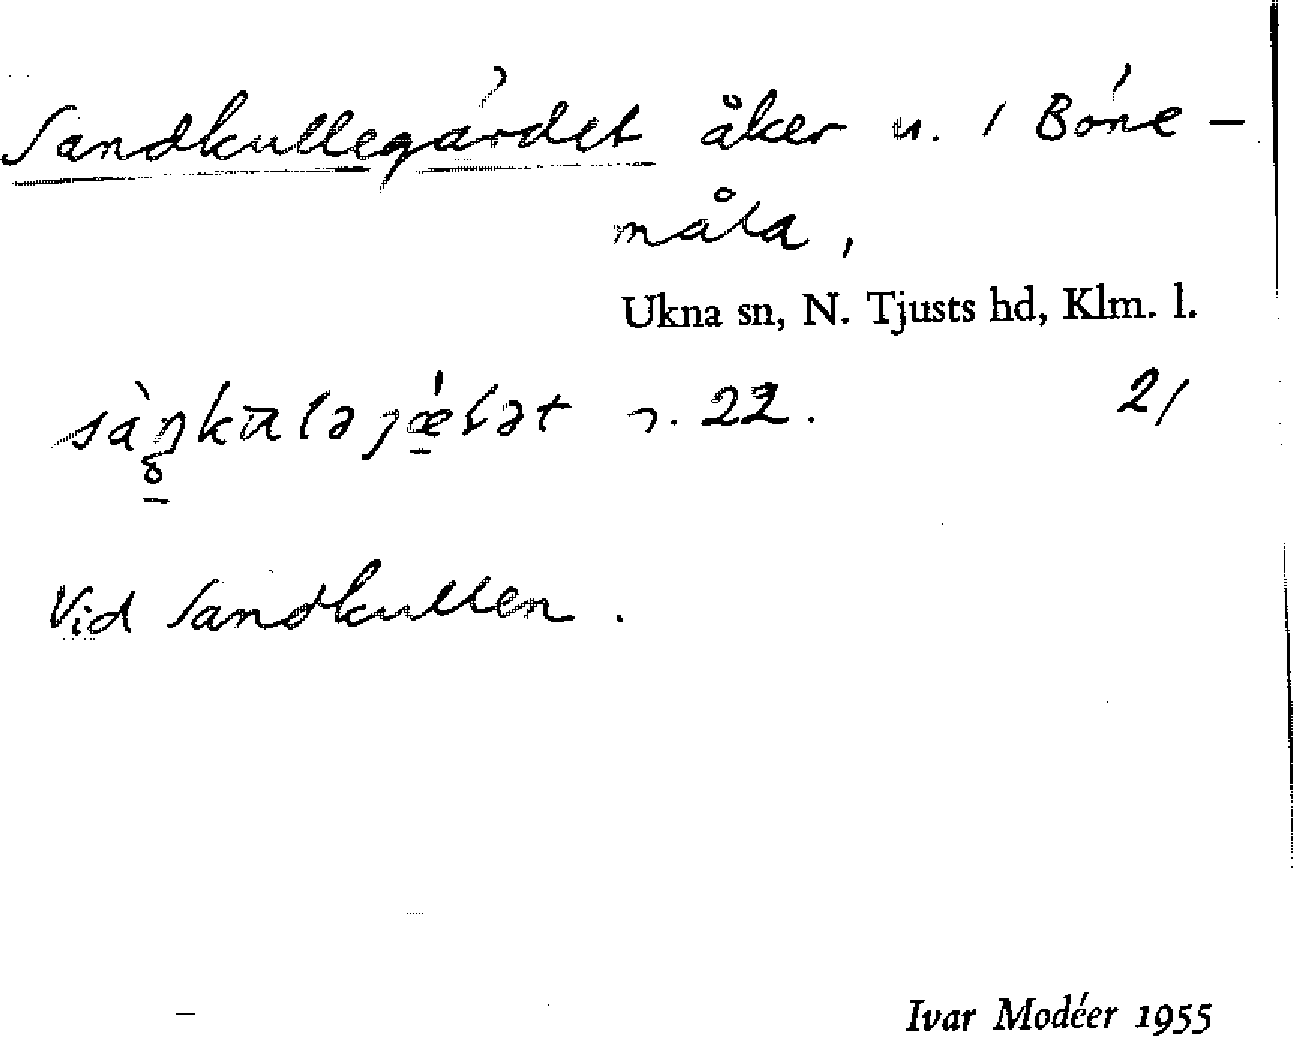 Sandkullegärdet åker n. i Böne-
måla,
Ukna sn, N. Tjusts hd, Klm. l.
22. 21
Vid Sandkullen.
Ivar Modéer 1955